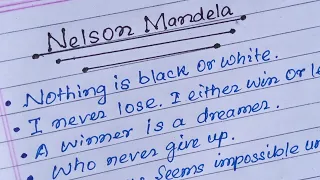 Nelson Mandela
• Nothing is black or white.
• I never lose. I either win or
• A winner is a dreamer.
• Who never give up.
seems impossible